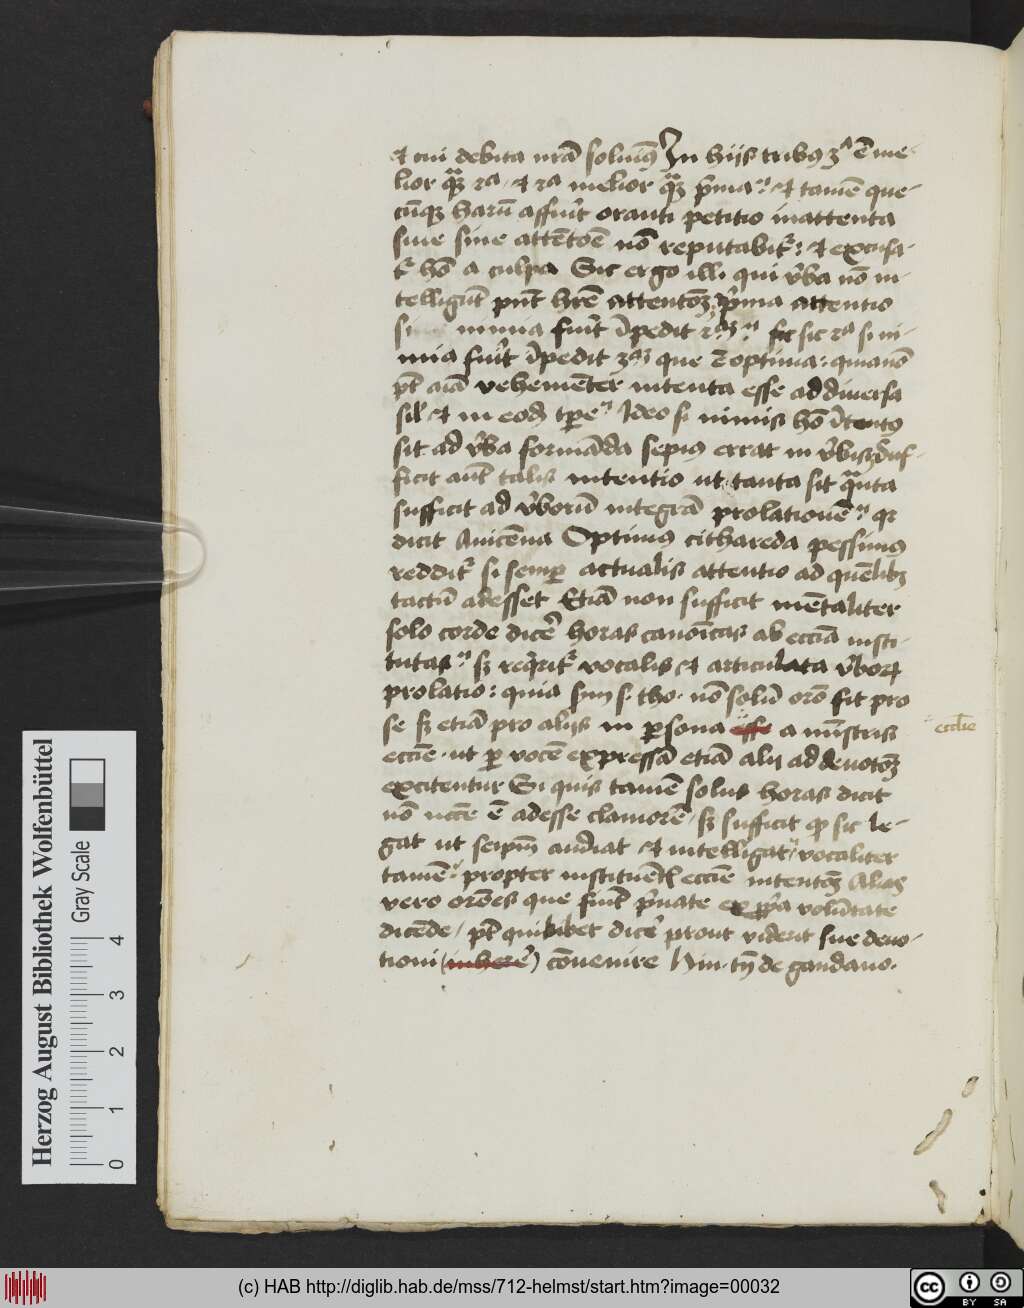 et cui debita nr̄a soluim⁹ In hijs tribꝰ 3ᵃ ē me-
lior qͣꝫ 2ᵃ · et 2ᵃ melior qͣꝫ p̄ma · et tamē que-
cūqꝫ harū affuīt oranti petitio inattenta
siue sine attētōe nō reputabit̄ : et excusa-
t̄ hō a culpa Sic ergo illi qui v̄ba nō in-
telligūt pn̄t hr̄e attentōꝫ p̄ma attentio
si nimia fuīt īpedit fit sic 2ᵃ si ni-
mia fuīt īpedit 3ᵃꝫ que ē optima : quia nō
pt̄ aīa vehemēter intenta esse ad diuersa
sil̄ et in eodꝫ tp̄e Ideo si nimis hō ītento
sit ad v̄ba formāda sepiꝰ errat in v̄bis Suf-
ficit aūt talis intentio ut tanta sit qͣnta
sufficit ad v̄borū integrā prolationē qꝛ
dicit Auicēna Optimus cithareda pessimus
reddit̄ si semꝑ actualis attentio ad quēlibꝫ
tactū adesset Etiā non sufficit mētaliter
solo corde dicē horas canōicas ab ecciā insti-
tutas sꝫ req̄rit̄ vocalis et articulata v̄boꝝ
prolatio : quia sm s. tho. nō solū orō fit pro
se sꝫ etiā pro alijs in ꝑsona esse a mīstris
ecclie
eccīe · ut ꝑ vocē expressā etiā alij ad deuotōꝫ
excitentur Si quis tamē solus horas dicit
nō nccē ē adesse clamorē / sꝫ sufficit ꝙ sic le-
gat ut seipm̄ audiat et intelligat / vocaliter
tamē propter instituentē eccīe intentōꝫ Alias
vero orōes que fiūt p̄uate ex ꝓpa volūtate
dicēde / pt̄ quilibet dicē prout viderit sue deuo-
tioni (inherē) cōuenire Hin. tꝫ de gandauo.
Herzog August Bibliothek Wolfenbüttel
Gray Scale
0 1 2 3 4
(c) HAB http://diglib.hab.de/mss/712-helmst/start.htm?image=00032
cc BY SA